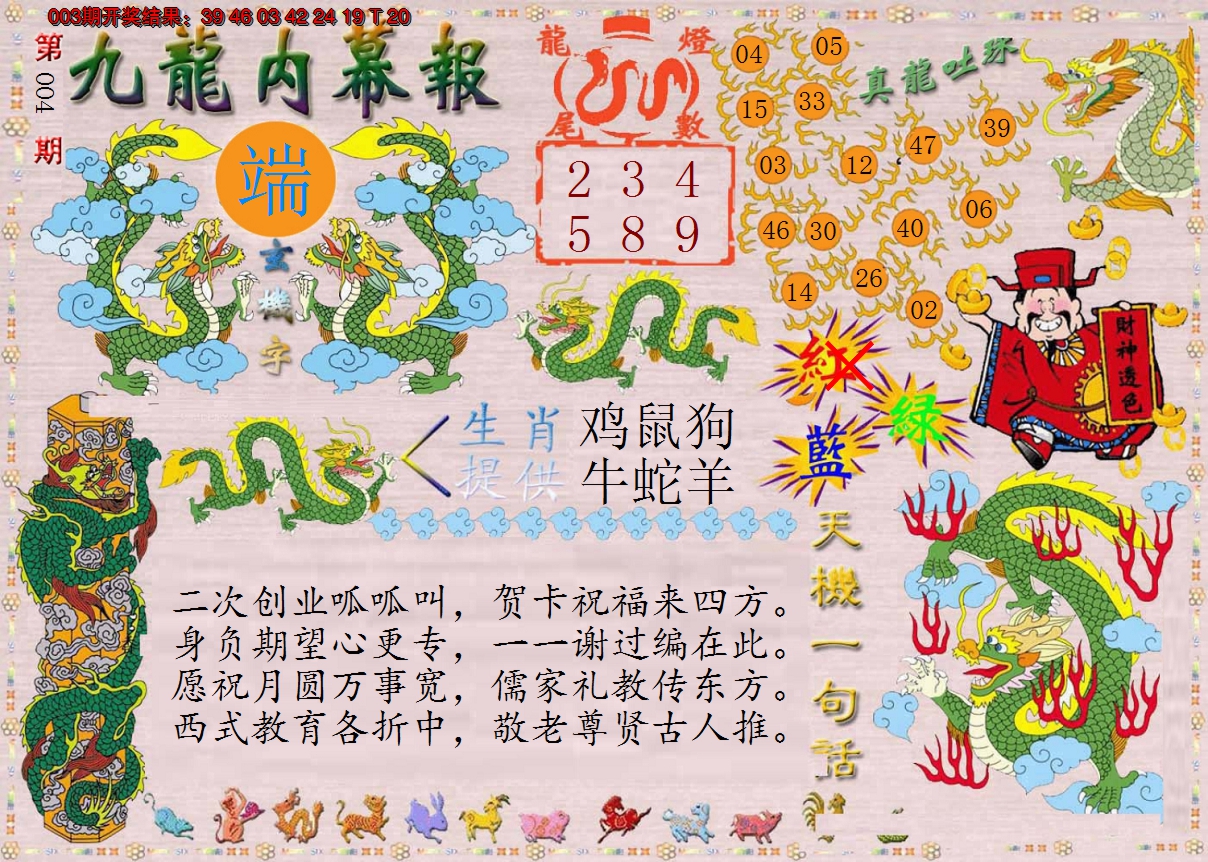 003期开奖结果：39 46 03 42 24 19 T 20
第004期
九龍内幕報
端
玄機字
龍燈
尾數
2 3 4
5 8 9
真龍吐珠
04
05
15
33
03
12
47
39
46
30
40
06
14
26
02
財神透色
紅
绿
藍
生肖
提供
鸡鼠狗
牛蛇羊
天機一句話
二次创业呱呱叫，贺卡祝福来四方。
身负期望心更专，一一谢过编在此。
愿祝月圆万事宽，儒家礼教传东方。
西式教育各折中，敬老尊贤古人推。